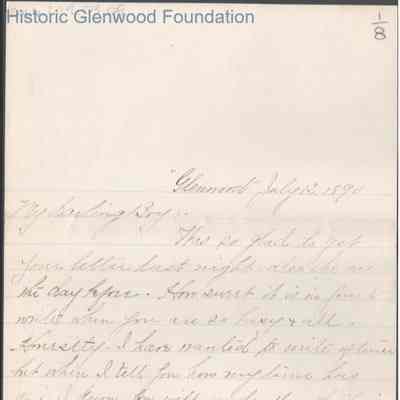 Historic Glenwood Foundation
1/8
"Glenwood" July 12, 1890
My darling Boy:
Was so glad to get
your letter last night also the one
the day before. How sweet it is in you to
write when you are so busy & all.
Honestly I have wanted to write
but when I tell you how my time has
you will